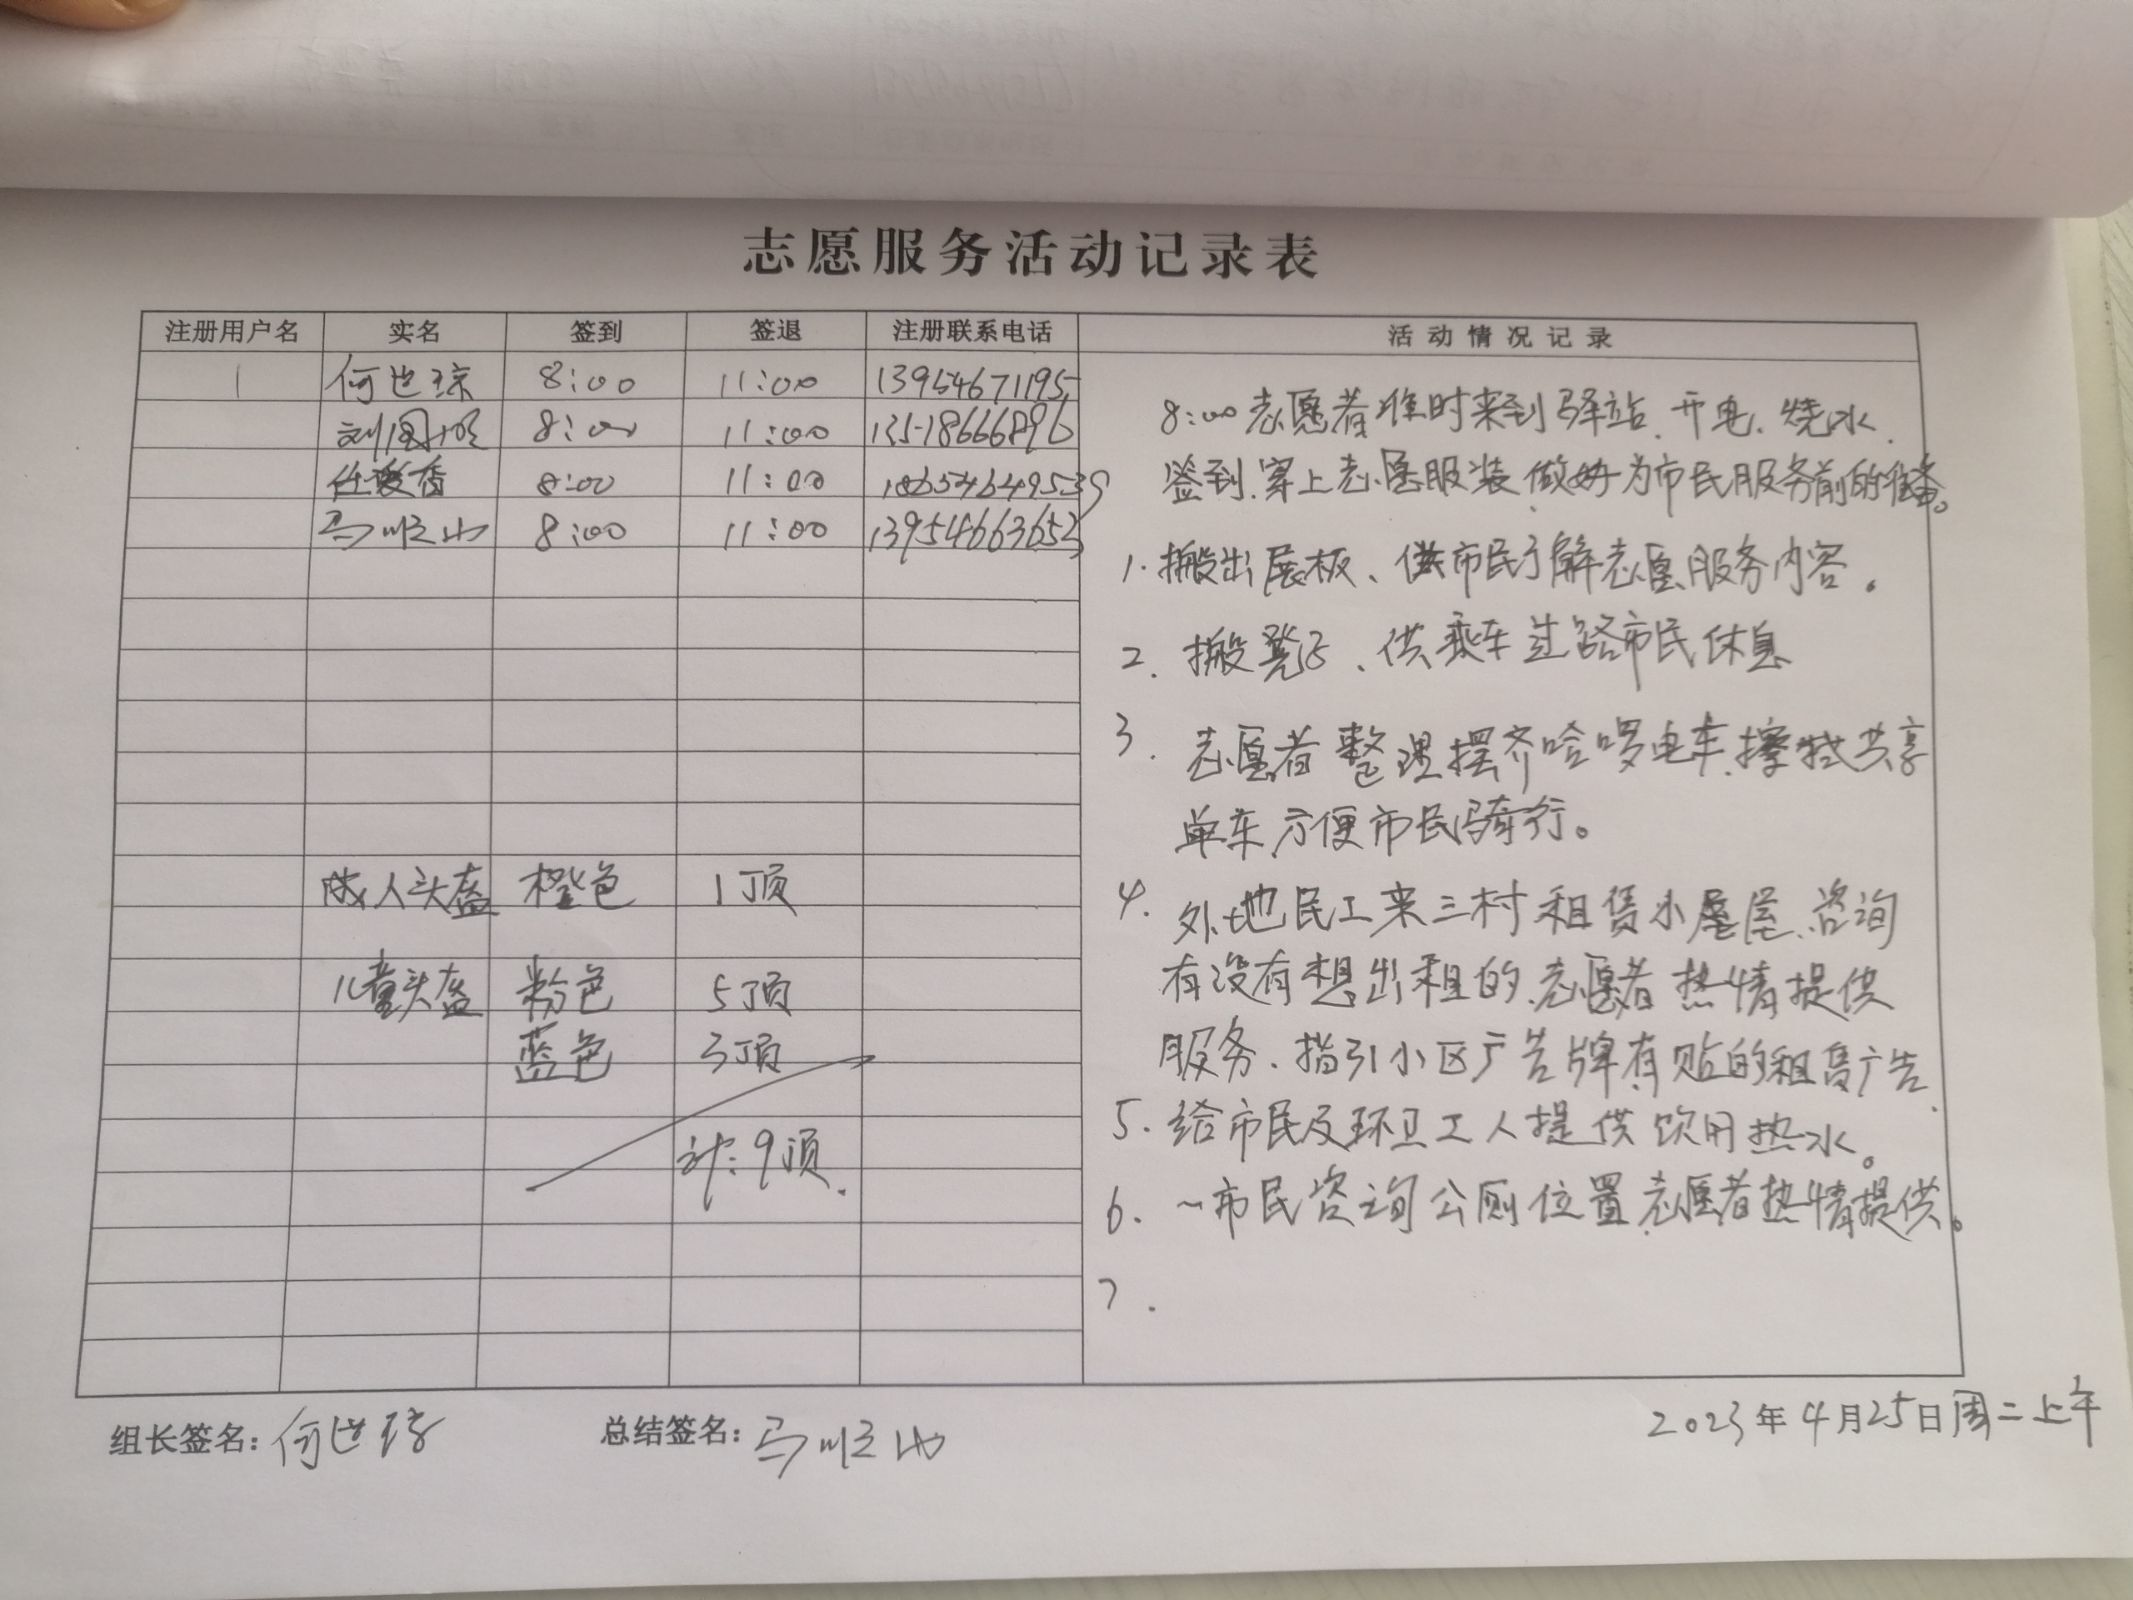 志愿服务活动记录表
注册用户名 实名 签到 签退 注册联系电话 活动情况记录
1 何世琼 8:00 11:00 13954671195
8:00 11:00 13518666896
任爱香 8:00 11:00 18654649539
马顺山 8:00 11:00 13954663652
成人头盔 橙色 1顶
儿童头盔 粉色 5顶
蓝色 3顶
计:9顶.
8:00志愿者准时来到驿站、开电、烧水、
签到、穿上志愿服装、做好为市民服务前的准备。
1.搬出展板、供市民了解志愿服务内容。
2.搬凳子、供乘车过路市民休息
3.志愿者整理摆齐哈啰电车、擦拭共享
单车、方便市民骑行。
4.外地民工来三村租赁小屋、咨询
有没有想出租的、志愿者热情提供
服务、指引小区广告牌有贴的租售广告、
5.给市民及环卫工人提供饮用热水。
6.一市民咨询公厕位置、志愿者热情提供。
7.
组长签名:何世琼 总结签名:马顺山 2023年4月25日周二上午